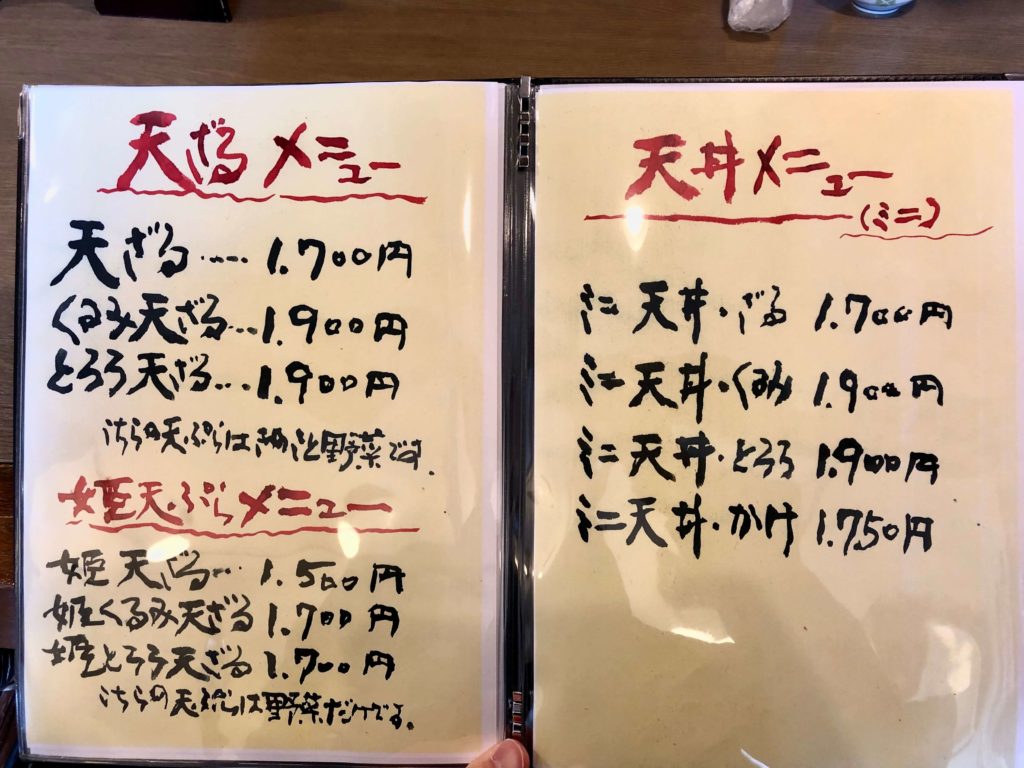 天ざるメニュー
天ざる‥‥1.700円
くるみ天ざる…1.900円
とろろ天ざる…1.900円
こちらの天ぷらはきのこと野菜です。
姫天ぷらメニュー
姫天ざる…1.500円
姫くるみ天ざる 1.700円
姫とろろ天ざる 1.700円
こちらの天ぷらは野菜だけです。
天丼メニュー
(ミニ)
ミニ天丼・ざる 1.700円
ミニ天丼・くるみ 1.900円
ミニ天丼・とろろ 1.900円
ミニ天丼・かけ 1.750円